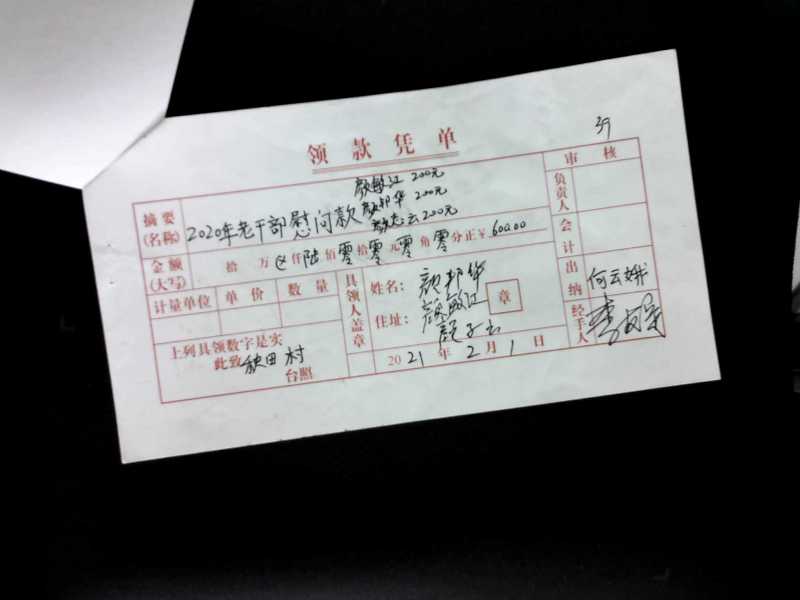 39
领款凭单
审核
摘要(名称) 2020年老干部慰问款
颜敏江 200元
颜邦华 200元
云200元
负责人
金额(大写) 拾万⊗仟陆佰零拾零元零角零分正¥600.00
会计
计量单位 单价 数量
具领人盖章
姓名: 颜邦华
颜敏江
住址:
章
出纳 何云娥
经手人 李
上列具领数字是实
此致 秧田村
台照
2021年2月1日